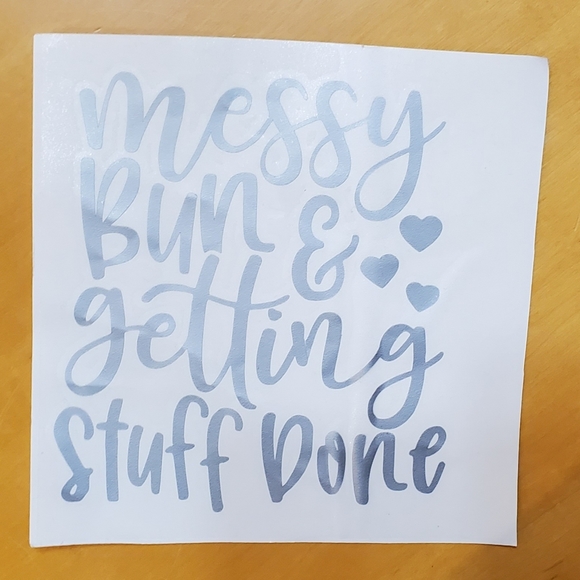 messy
Bun &
getting
Stuff Done